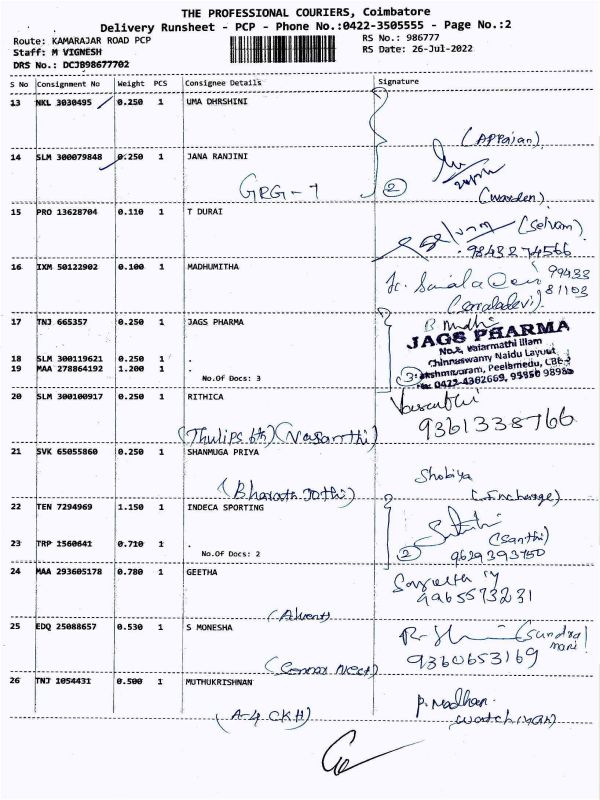 THE PROFESSIONAL COURIERS, Coimbatore
Delivery Runsheet - PCP - Phone No.:0422-3505555 - Page No.:2
Route: KAMARAJAR ROAD PCP RS No.: 986777
Staff: M VIGNESH RS Date: 26-Jul-2022
DRS No.: DCJB98677702
S No Consignment No Weight PCS Consignee Details Signature
13 NKL 3030495 0.250 1 UMA DHRSHINI
(APPaian)
14 SLM 300079848 0.250 1 JANA RANJINI
GRG-7 2
(warden)
15 PRO 13628704 0.110 1 T DURAI
(Selvam)
9843274566
16 IXM 50122902 0.100 1 MADHUMITHA
99433
81103
(Saraladevi)
17 TNJ 665357 0.250 1 JAGS PHARMA
JAGS PHARMA
Chinnaswamy Naidu Layout
18 SLM 300119621 0.250 1 .
19 MAA 278864192 1.200 1 .
No.Of Docs: 3 3
0422-4362669,
20 SLM 300100917 0.250 1 RITHICA
9361338766
(Vasanthi)
21 SVK 65055860 0.250 1 SHANMUGA PRIYA
Shobiya
(Bharath Jothi) (Incharge)
22 TEN 7294969 1.150 1 INDECA SPORTING
(Santhi)
23 TRP 1560641 0.710 1 .
No.Of Docs: 2 2 9629393750
24 MAA 293605178 0.780 1 GEETHA
9965573231
25 EDQ 25088657 0.530 1 S MONESHA
9360653169
26 TNJ 1054431 0.500 1 MUTHUKRISHNAN
P. Madhan
(A-4 CKH) watchman